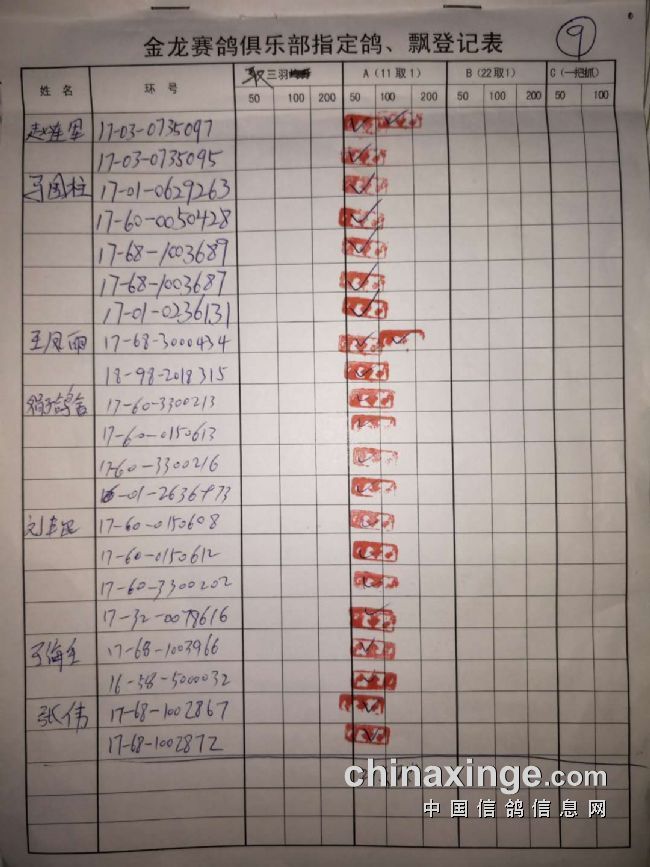 金龙赛鸽俱乐部指定鸽、飘登记表
9
姓名 环号 取三羽 A(11取1) B(22取1) C(一把抓)
50 100 200 50 100 200 50 100 200 50 100
17-03-0735097
17-03-0735095
马国柱 17-01-0629263
17-60-0050428
17-68-1003689
17-68-1003687
17-01-0236131
王凤丽 17-68-3000434
18-98-2018315
17-60-3300213
17-60-0150613
17-60-3300216
16-01-2636973
17-60-0150608
17-60-0150612
17-60-3300202
17-32-0078616
17-68-1003966
16-58-5000032
张伟 17-68-1002867
17-68-1002872
chinaxinge.com
中国信鸽信息网